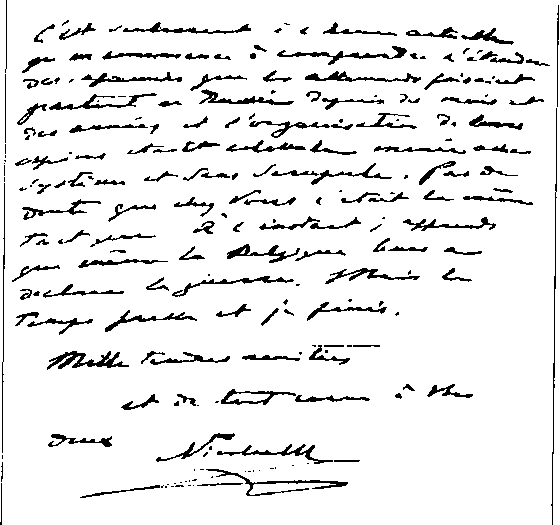 C'est seulement à l'heure actuelle
qu'on commence à comprendre l'étendue
des que les allemands faisaient
partout en Russie depuis des mois et
des années et l'organisation de leurs
espions était menée avec
système et sans scrupule. Pas de
doute que chez Vous c'était la même
tactique. À l'instant j'apprends
que même la Belgique leur a
déclaré la guerre. Mais le
temps presse et je finis.
Mille tendres amitiés
et de tout cœur à Vous
deux